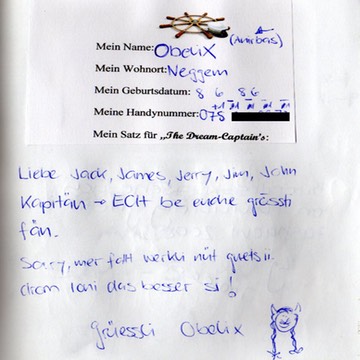 Mein Name: Obelix (Ambas)
Mein Wohnort: Neggem
Mein Geburtsdatum: 8 6 86
Meine Handynummer: 075
Mein Satz für „The Dream-Captain's:
Liebe Jack, James, Jerry, Jim, John
Kapitän → ECH be euche grösti
fän.
Sorry, mer fallt werkli nüt guets ii.
drom loni das besser si!
Grüessli Obelix